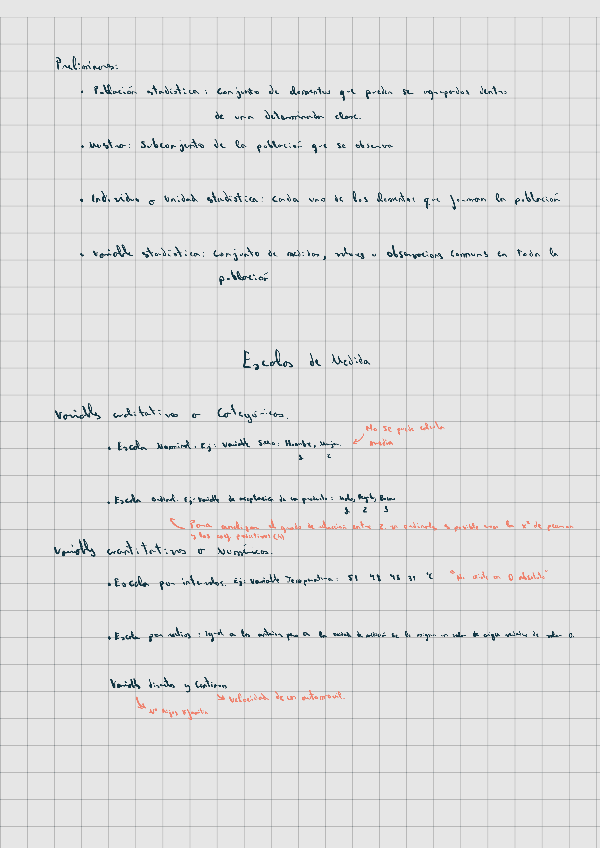 Preliminares:
• Población estadística: Conjunto de elementos que pueden ser agrupados dentro
de una determinada clase.
• Muestra: Subconjunto de la población que se observa
• Individuo o Unidad estadística: Cada uno de los elementos que forman la población
• Variable estadística: Conjunto de medidas, valores u observaciones comunes en toda la
población
Escalas de Medida
Variables cualitativas o Categóricas.
• Escala Nominal. Ej: Variable Sexo: Hombre, Mujer.
1 2
No se puede calcular
media
• Escala Ordinal. Ej: Variable de aceptación de un producto: Malo, Regular, Bueno
1 2 3
Para analizar el grado de relación entre 2. v. ordinales es posible usar la x² de pearson
y los coef.
Variables cuantitativas o Numéricas.
• Escala por intervalos. Ej: Variable Temperatura: 51 49 45 31 °C
"No existe un 0 absoluto"
• Escala por ratios: Igual a los pero
Variables discretas y Continuas
Velocidad de un automovil.
Nº hijos